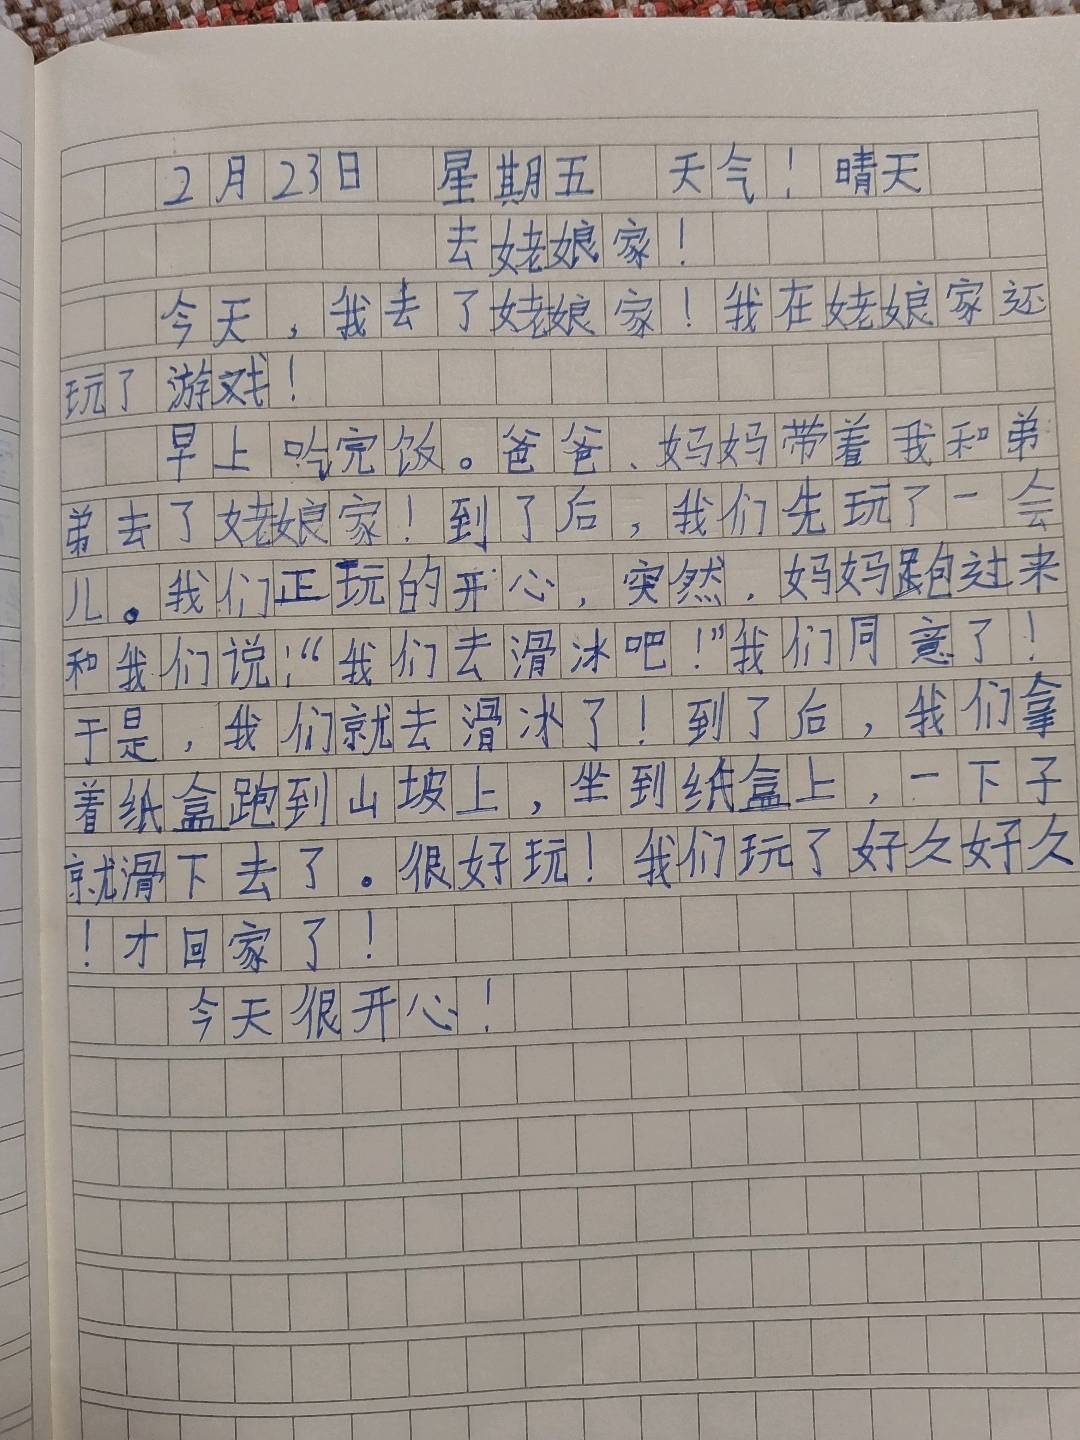 2月23日 星期五 天气！晴天
去姥娘家！
今天，我去了姥娘家！我在姥娘家还
玩了游戏！
早上吃完饭。爸爸、妈妈带着我和弟
弟去了姥娘家！到了后，我们先玩了一会
儿。我们正玩的开心，突然，妈妈跑过来
和我们说：“我们去滑冰吧！”我们同意了！
于是，我们就去滑冰了！到了后，我们拿
着纸盒跑到山坡上，坐到纸盒上，一下子
就滑下去了。很好玩！我们玩了好久好久
！才回家了！
今天很开心！